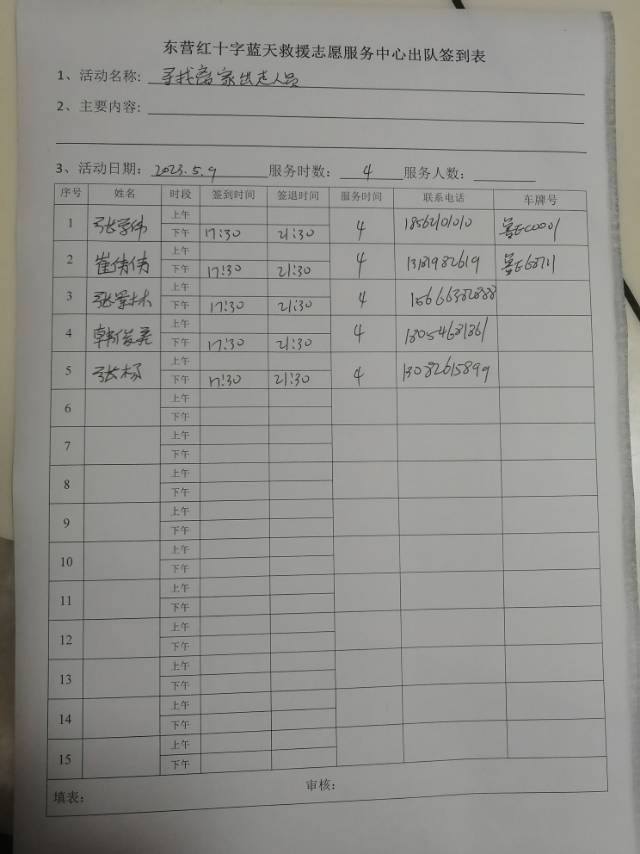 东营红十字蓝天救援志愿服务中心出队签到表
1、活动名称: 寻找离家出走人员
2、主要内容:
3、活动日期: 2023.5.9 服务时数: 4 服务人数:
序号 姓名 时段 签到时间 签退时间 服务时间 联系电话 车牌号
上午
1 下午 17:30 21:30 4 18562101010
上午
2 崔倩倩 下午 17:30 21:30 4 13181982619
上午
3 下午 17:30 21:30 4 15666382888
上午
4 下午 17:30 21:30 4
上午
5 张杨 下午 17:30 21:30 4 13082615899
上午
6 下午
上午
7 下午
上午
8 下午
上午
9 下午
上午
10 下午
上午
11 下午
上午
12 下午
上午
13 下午
上午
14 下午
上午
15 下午
填表: 审核: